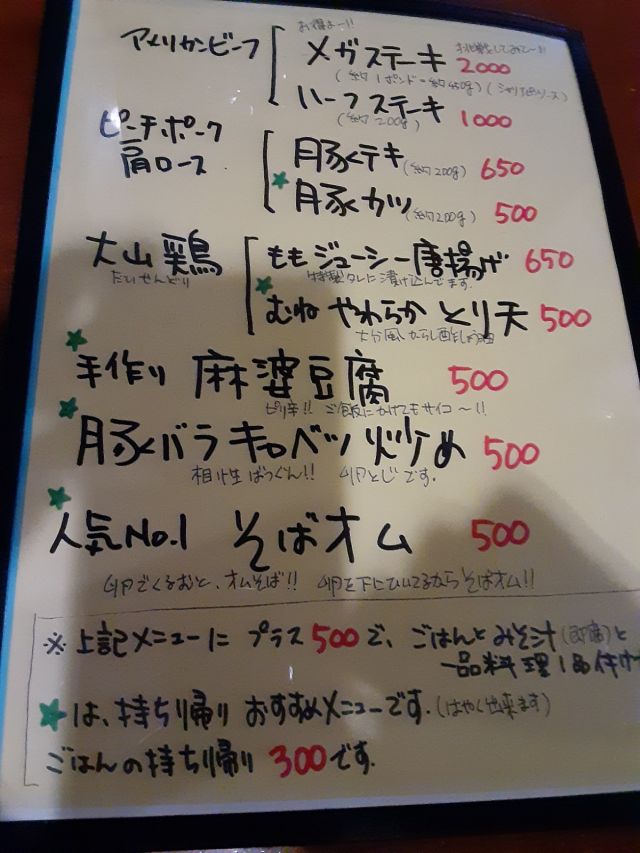 お得よー!!
アメリカンビーフ メガステーキ 2000
(約1ポンド=約450g)
ハーフステーキ 1000
(約200g)
ピーチポーク 肩ロース
豚テキ (約200g) 650
★豚カツ (約200g) 500
大山鶏 ももジューシー唐揚げ 650
だいせんどり 特製タレに漬け込んでます。
★むね やわらか とり天 500
大分風 からし酢しょう油
★手作り 麻婆豆腐 500
ピリ辛!! ご飯にかけてもサイコ〜!!
★豚バラ キャベツ炒め 500
相性ばつぐん!! 卵とじです。
★人気No.1 そばオム 500
卵でくるむと、オムそば!! 卵を下にひいてるからそばオム!!
※上記メニューに プラス500で、ごはんとみそ汁 と
一品料理1品付
★は、持ち帰り おすすめメニューです。(はやく出来ます)
ごはんの持ち帰り 300です。